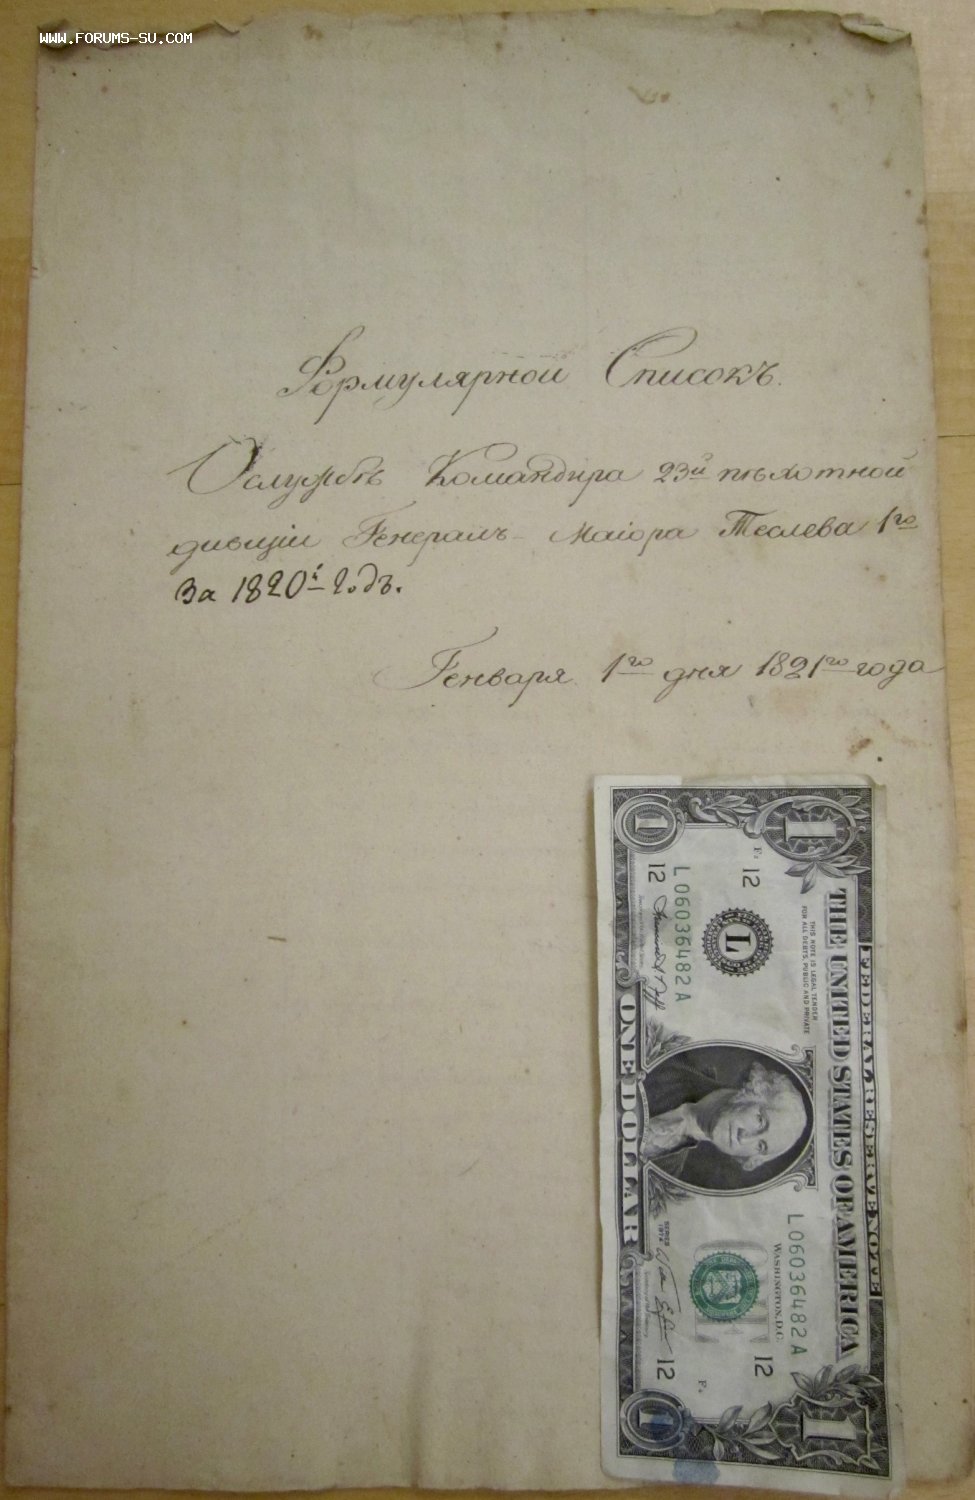 WWW.FORUMS-SU.COM
Формулярной Списокъ.
О службѣ Командира 23й пѣхотной
дивизіи Генералъ-Маіора Теслева 1го
За 1820й годъ.
Генваря 1го дня 1821го года
FEDERAL RESERVE NOTE
THE UNITED STATES OF AMERICA
THIS NOTE IS LEGAL TENDER
FOR ALL DEBTS, PUBLIC AND PRIVATE
L 06036482 A
12
12
L
1
1
WASHINGTON, D.C.
L 06036482 A
12
12
SERIES
1974
1
1
ONE DOLLAR